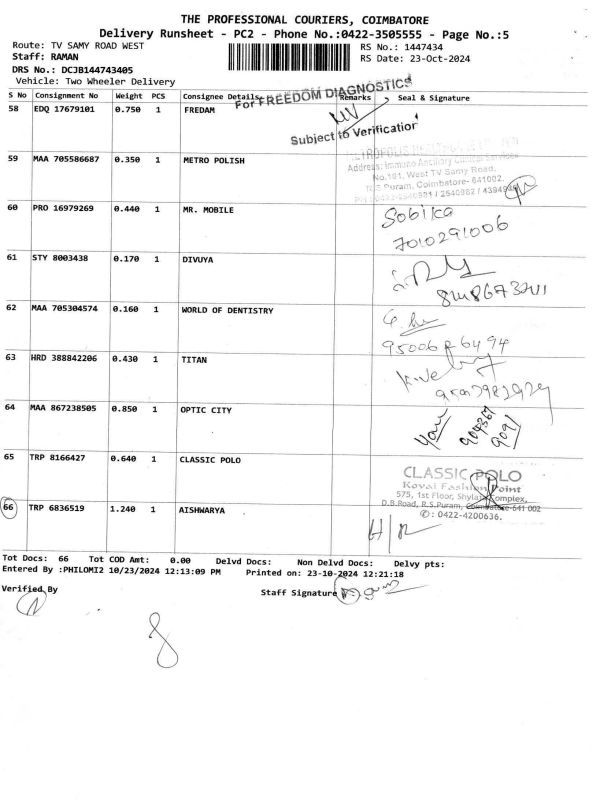 THE PROFESSIONAL COURIERS, COIMBATORE
Delivery Runsheet - PC2 - Phone No.:0422-3505555 - Page No.:5
Route: TV SAMY ROAD WEST
RS No.: 1447434
Staff: RAMAN
RS Date: 23-Oct-2024
DRS No.: DCJB144743405
Vehicle: Two Wheeler Delivery
S No Consignment No Weight PCS Consignee Details Remarks Seal & Signature
For FREEDOM DIAGNOSTICS
58 EDQ 17679101 0.750 1 FREDAM
Subject to Verification
59 MAA 705586687 0.350 1 METRO POLISH
Address: Immuno Ancillary Services
No.101, West TV Samy Road,
R.S Puram, Coimbatore- 641002.
60 PRO 16979269 0.440 1 MR. MOBILE
Sobika
7010291006
61 STY 8003438 0.170 1 DIVUYA
62 MAA 705304574 0.160 1 WORLD OF DENTISTRY
63 HRD 388842206 0.430 1 TITAN
64 MAA 867238505 0.850 1 OPTIC CITY
904367
9091
65 TRP 8166427 0.640 1 CLASSIC POLO
CLASSIC POLO
Kovai Fashion Point
575, 1st Floor, Shylaja Complex,
D.B.Road, R.S.Puram, Coimbatore-641 002
✆: 0422-4200636.
66 TRP 6836519 1.240 1 AISHWARYA
Tot Docs: 66 Tot COD Amt: 0.00 Delvd Docs: Non Delvd Docs: Delvy pts:
Entered By :PHILOMI2 10/23/2024 12:13:09 PM Printed on: 23-10-2024 12:21:18
Verified By
Staff Signature